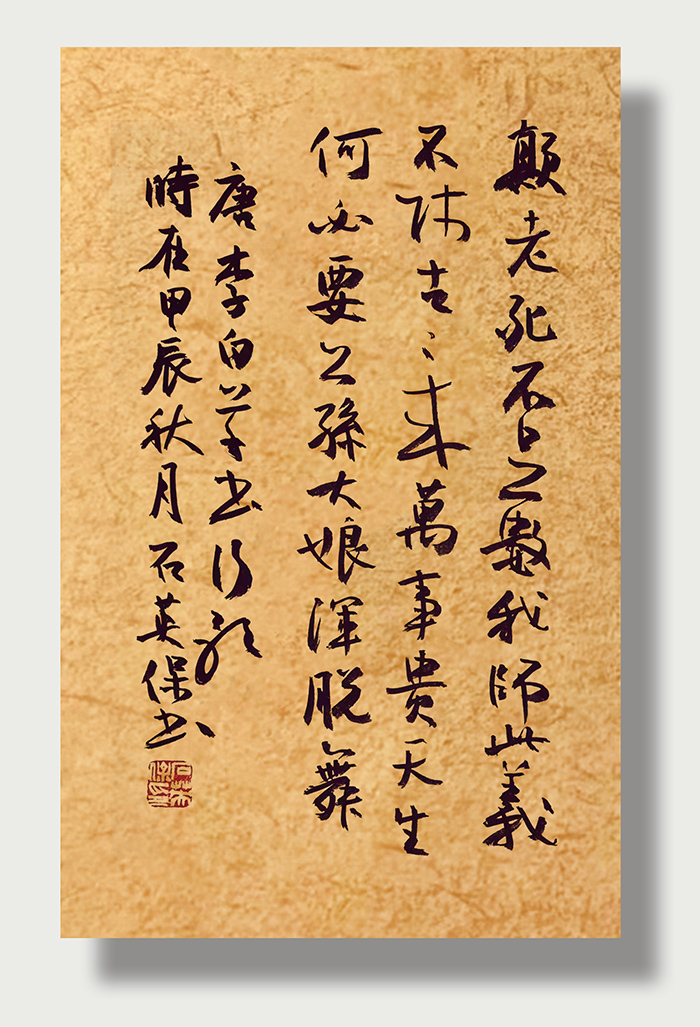 顛老死不足數我師此義
不师古〻来萬事貴天生
何必要公孫大娘渾脱舞
唐李白草书行歌
時在甲辰秋月石英保书
石英保印